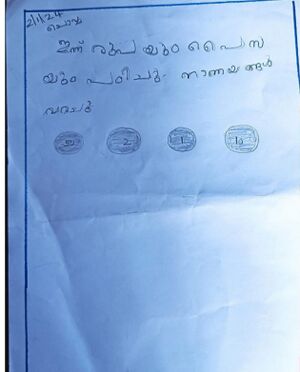 2/1/24
ചൊവ്വ
ഇന്ന് രൂപ യും പൈസ
യും പഠിച്ചു. നാണയ ങ്ങൾ
വരച്ചു
2 1 10